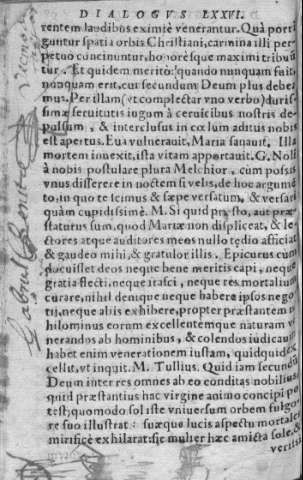 DIALOGVS LXXVI.
rentem laudibus eximiè venerantur. Quà porri
guntur spatia orbis Christiani, carmina illi per
petuo concinuntur, honorésque maximi tribuū
tur. Et quidem meritò: quando nunquam fuit,
nunquam erit, cui secundùm Deum plus debea
mus. Per illam (vt complectar vno verbo) duris
simæ seruitutis iugum à ceruicibus nostris de-
pulsum, & interclusus in cœlum aditus nobis
est apertus. Eua vulnerauit, Maria sanauit. Illa
mortem inuexit, ista vitam apportauit. G. Noli
à nobis postulare plura Melchior, cùm possis
vnus disserere in noctem si velis, de hoc argumē
to, in quo te scimus & sæpe versatum, & versari
quàm cupidissimè. M. Si quid præsto, aut præ-
staturus sum, quod Mariæ non displiceat, & le-
ctores atque auditores meos nullo tędio afficiat
& gaudeo mihi, & gratulor illis. Epicurus cùm
docuisset deos neque bene meritis capi, neque
gratia flecti, neque irasci, neque res mortalium
curare, nihil denique neque habere ipsos nego-
tij, neque aliis exhibere, propter præstantem ni
hilominus eorum excellentemque naturam ve
nerandos ab hominibus, & colendos iudicauit
habet enim venerationem iustam, quidquid ex
cellit, vt inquit. M. Tullius. Quid iam secundū
Deum inter res omnes ab eo conditas nobilius,
quid præstantius hac virgine animo concipi po
test; quomodo sol iste vniuersum orbem fulgo-
re suo illustrat: suæque lucis aspectu mortales
mirificè exhilarat: sic mulier hæc amicta sole, &
veritis